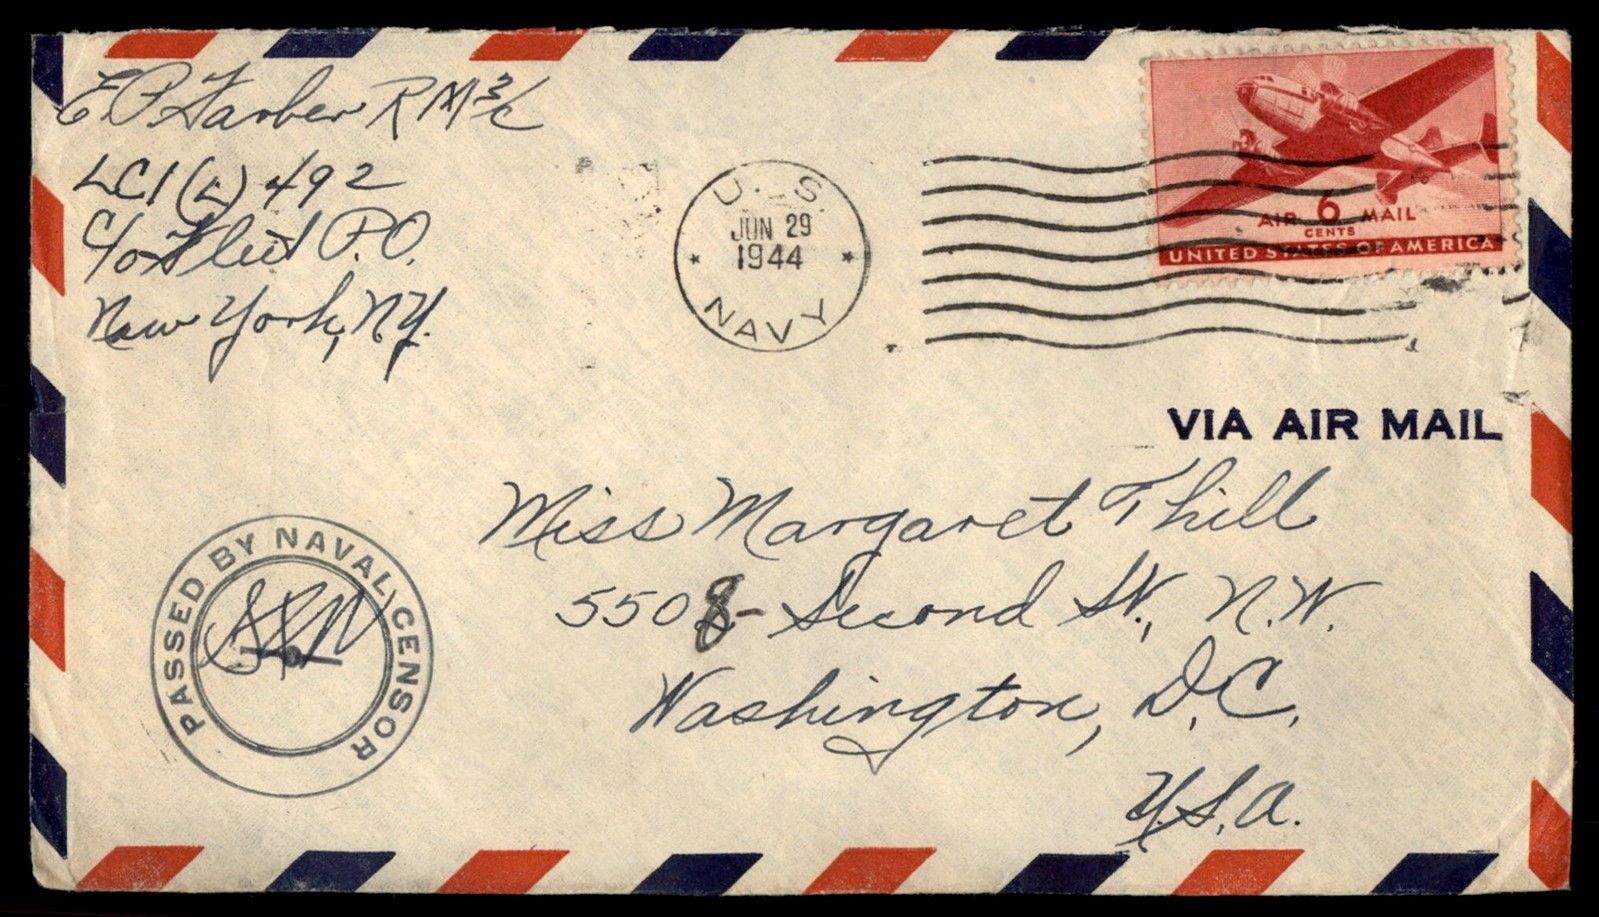 E P Farber RM 3/c
LCI (L) 492
C/o Fleet P.O.
New York, N.Y.
U. S.
JUN 29
1944
NAVY
AIR 6 MAIL
CENTS
UNITED STATES OF AMERICA
VIA AIR MAIL
Miss Margaret Thill
5508- Second St., N.W.
Washington, D.C.
U.S.A.
PASSED BY NAVAL CENSOR